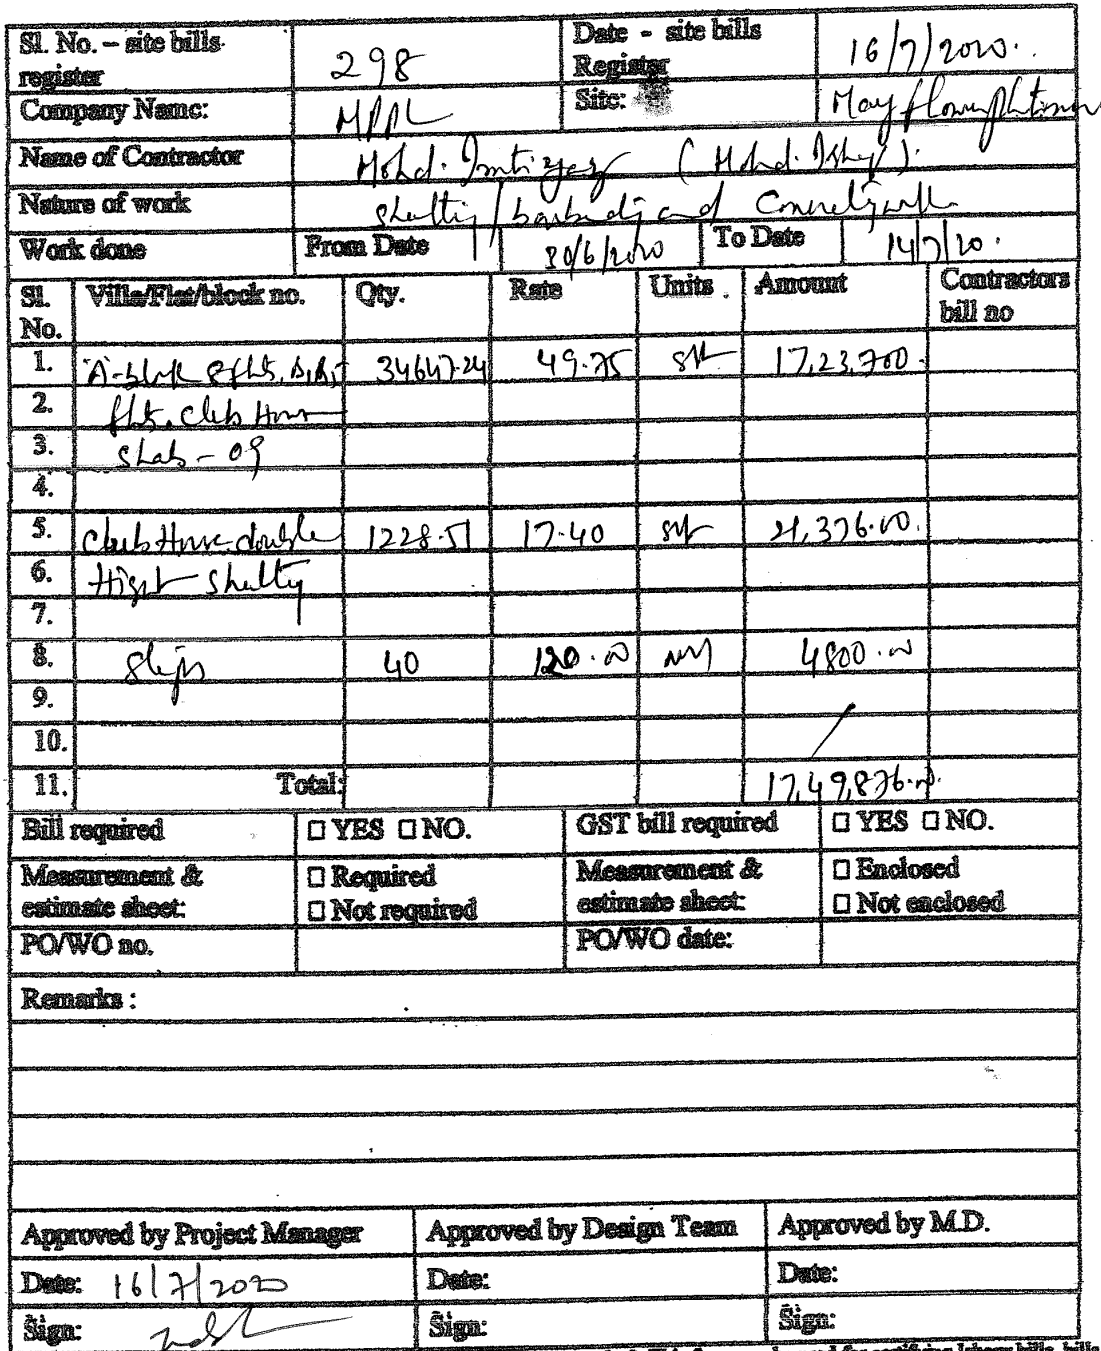 Sl. No. – site bills register 298 Date - site bills Register 16/7/2020.
Company Name: MPPL Site: Mayflower Platinum
Name of Contractor Mohd. Imtiyaz (Mohd. Ishaq).
Nature of work and
Work done From Date 30/6/2020 To Date 14/7/20.
Sl. No. Villa/Flat/block no. Qty. Rate Units Amount Contractors bill no
1. 'A'-block 34647.24 49.75 sft 17,23,700.
2. flats, Club House
3. Slab - 09
4.
5. Club House double 1228.51 17.40 sft 21,376.00.
6. Hight Shuttig
7.
8. 40 120.00 4800.00
9.
10.
11. Total: 17,49,876.00.
Bill required □ YES □ NO. GST bill required □ YES □ NO.
Measurement & estimate sheet: □ Required □ Not required Measurement & estimate sheet: □ Enclosed □ Not enclosed
PO/WO no. PO/WO date:
Remarks :
Approved by Project Manager Approved by Design Team Approved by M.D.
Date: 16/7/2020 Date: Date:
Sign: Sign: Sign: